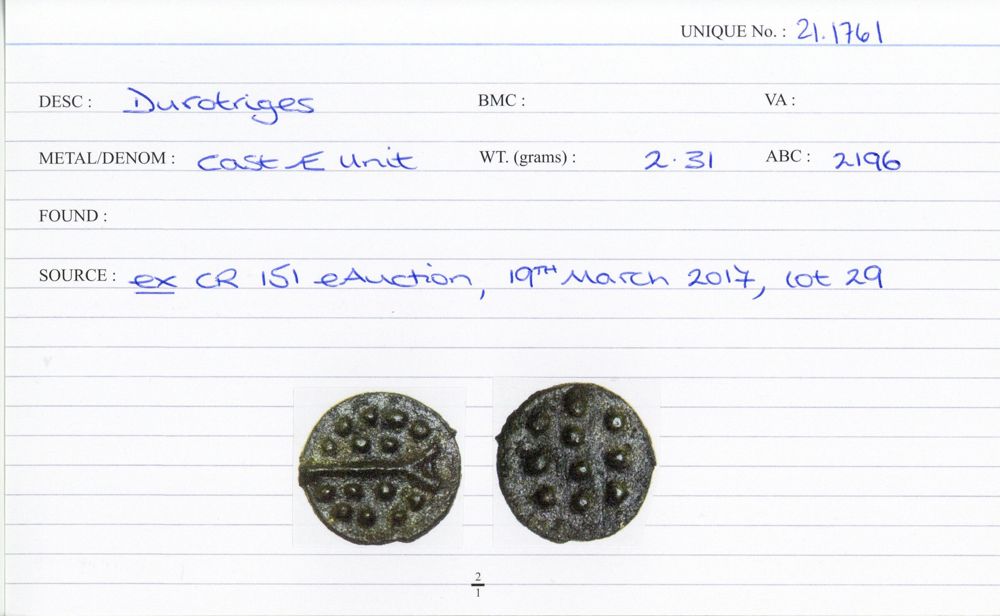 UNIQUE No. : 21.1761
DESC : Durotriges BMC : VA :
METAL/DENOM : Cast Æ Unit WT. (grams) : 2.31 ABC : 2196
FOUND :
SOURCE : ex CR 151 eAuction, 19TH March 2017, lot 29
2
1